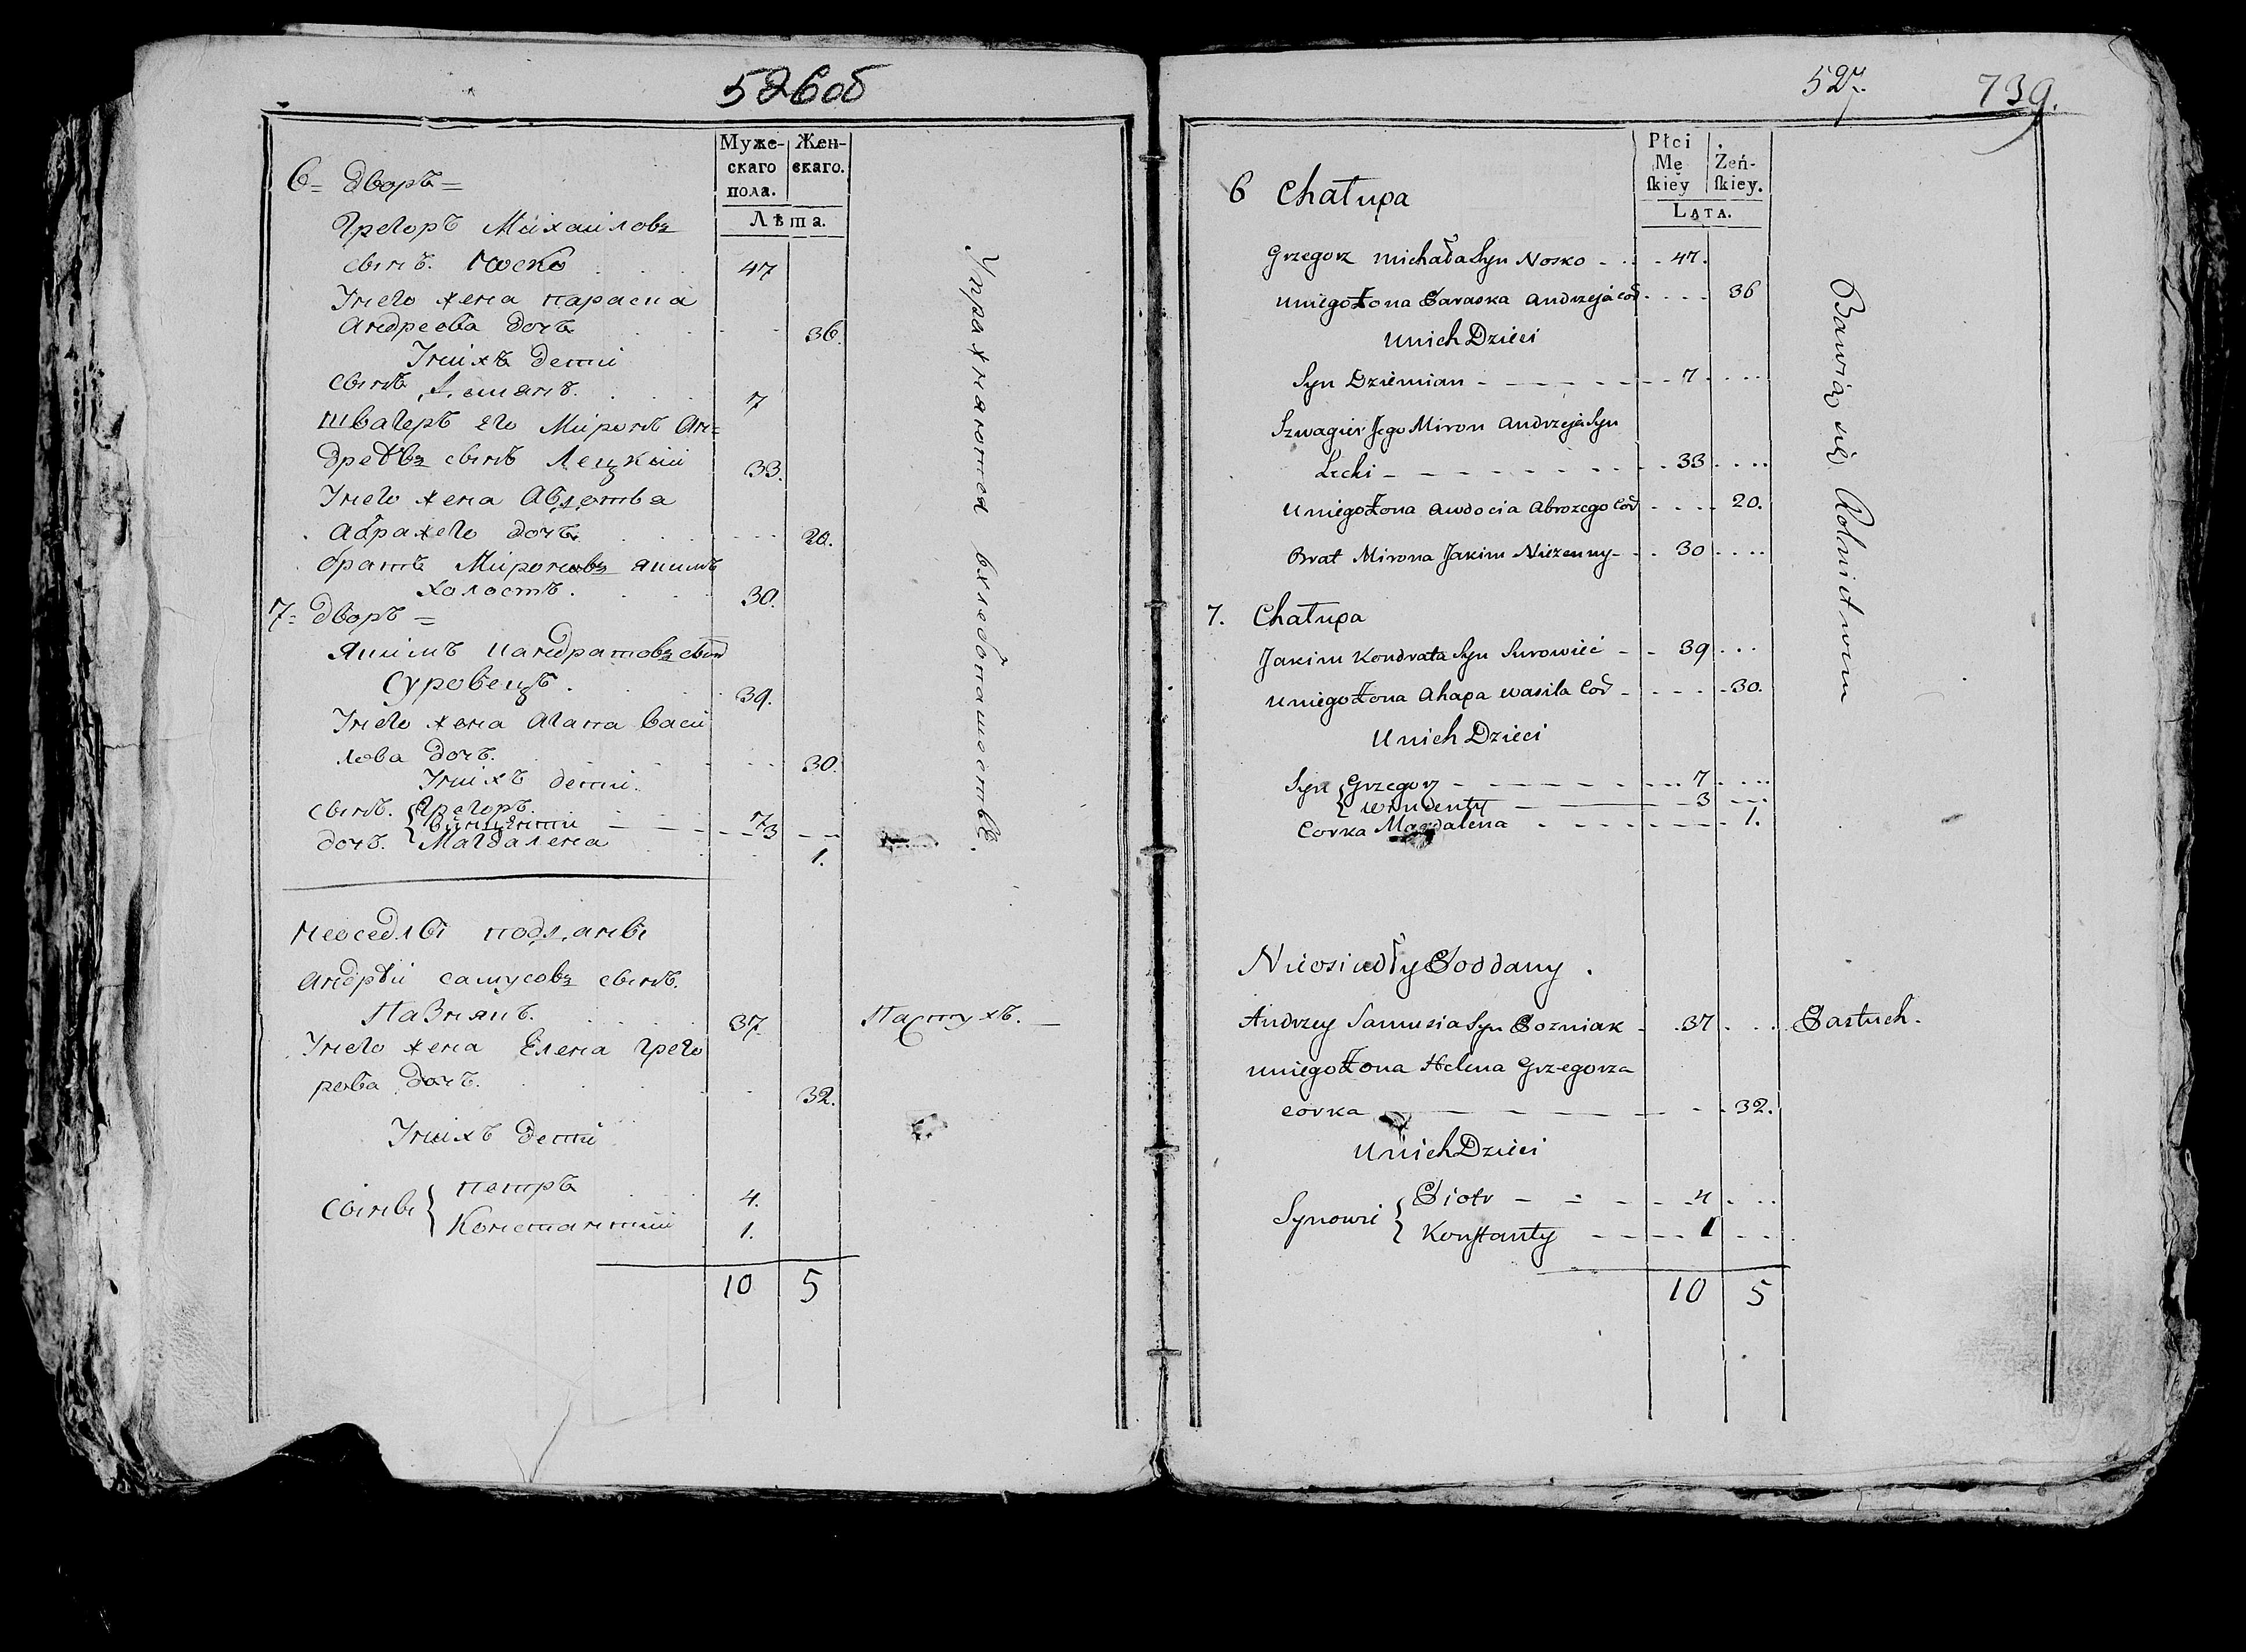 526об
Муже- Жен-
скаго скаго.
пола.
Лѣта.
6= дворъ=
Грегоръ Михаиловъ
сынъ. Носко . . . 47
Унего жена параска
андреева дочъ . . . 36.
Унихъ дети
сынъ Демянъ. . . . 7
швагеръ его Миронъ Ан=
дреѣвъ сынъ Лецкии 33.
Унего жена Авдотья
абражего дочъ . . . 20.
братъ Мироновъ якимъ
холостъ. . . . 30.
7= дворъ =
якимъ кандратовъ сынъ
Суровецъ . . . 39.
Унего жена агапа васи
лева дочъ. . . . 30.
Унихъ дети.
сынъ. Грегоръ. . . . 7
Винцентии – – – 3
дочъ. Магдалена . . . 1.
Упражняются вхлебопашестве.
неоседлы подданы
андрѣи самусовъ сынъ.
Пазнякъ. . . . 37. Пастухъ. —
Унего жена Елена Грего
рева дочъ. . . . 32.
Унихъ дети
сыны петръ . . . 4.
Константии 1.
10 5
527. 739.
Płci Żeń-
Mę skiey.
skiey
LATA.
6 Chałupa
Grzegorz michała Syn Nosko - . . - 47.
uniego Żona Paraska andrzeja cod. . . . . 36
unich Dzieci
Syn Dziemian - - - - - 7 . . . .
Szwagier Jego Miron andrzeja Syn
Lecki - - - - - - 33 . . . .
uniego Żona awdocia abrozego cod . . . . 20.
Brat Mirona Jakim Nieżenny - . 30 . . . .
7. Chałupa
Jakim Kondrata Syn Surowiec - - 39 . . .
uniego Żona ahapa wasila cod - . . . - 30.
unich Dzieci
Syn Grzegorz - - - - - 7 . . . .
wincenty - - 3 - - -
Corka Magdalena . - - - - - 1.
Bawią się Rolnictwem
Nieosiadły Poddany .
Andrzey Samusia Syn Pozniak - . 37 . . . Pastuch.
uniego Żona Helena Grzegorza
corka - - - - - - 32.
unich Dzieci
Synowie Piotr - - - - 4 . . .
Konstanty - - - - 1 . . .
10 5